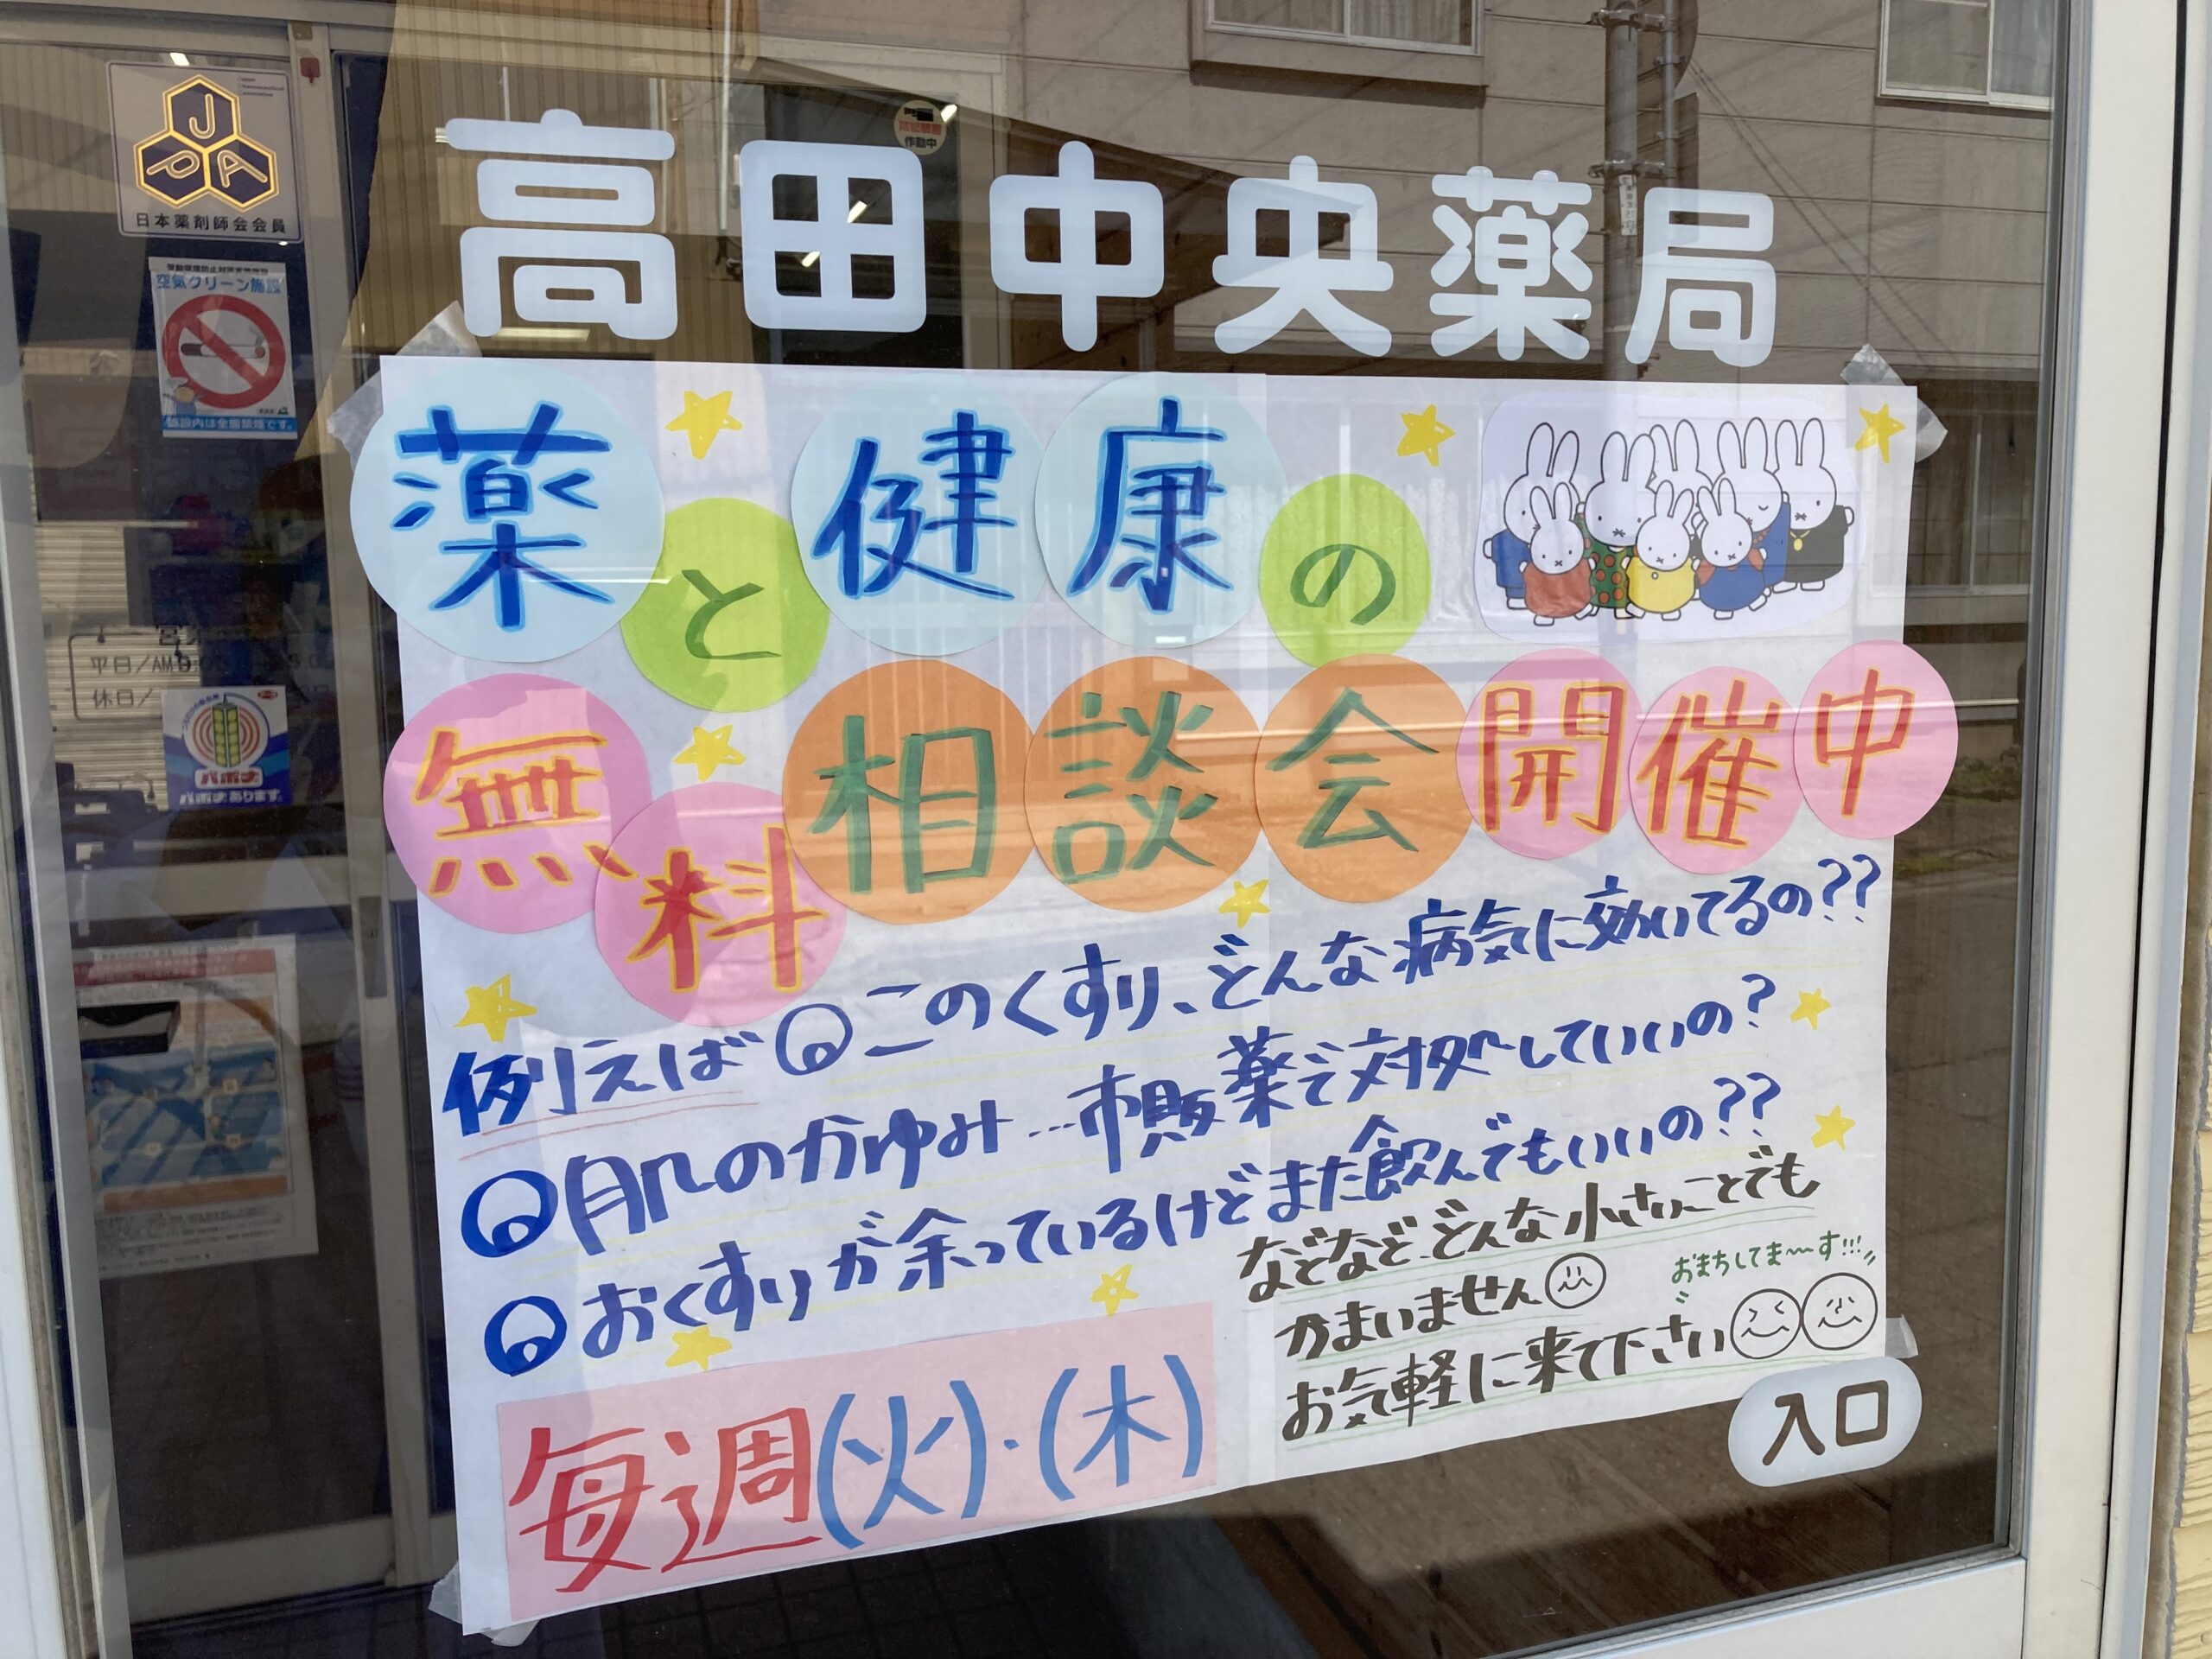 JPA
日本薬剤師会会員
空気クリーン施設
施設内は全面禁煙です。
作動中
高田中央薬局
薬と健康の
無料相談会開催中
例えば このくすり、どんな病気に効いてるの??
肌のかゆみ…市販薬で対処していいの?
おくすりが余っているけどまた飲んでもいいの??
などなど…どんな小さいことでも
かまいません
お気軽に来て下さい
おまちしてま〜す!!!
毎週(火)・(木)
入口
平日/AM
休日/
あります。